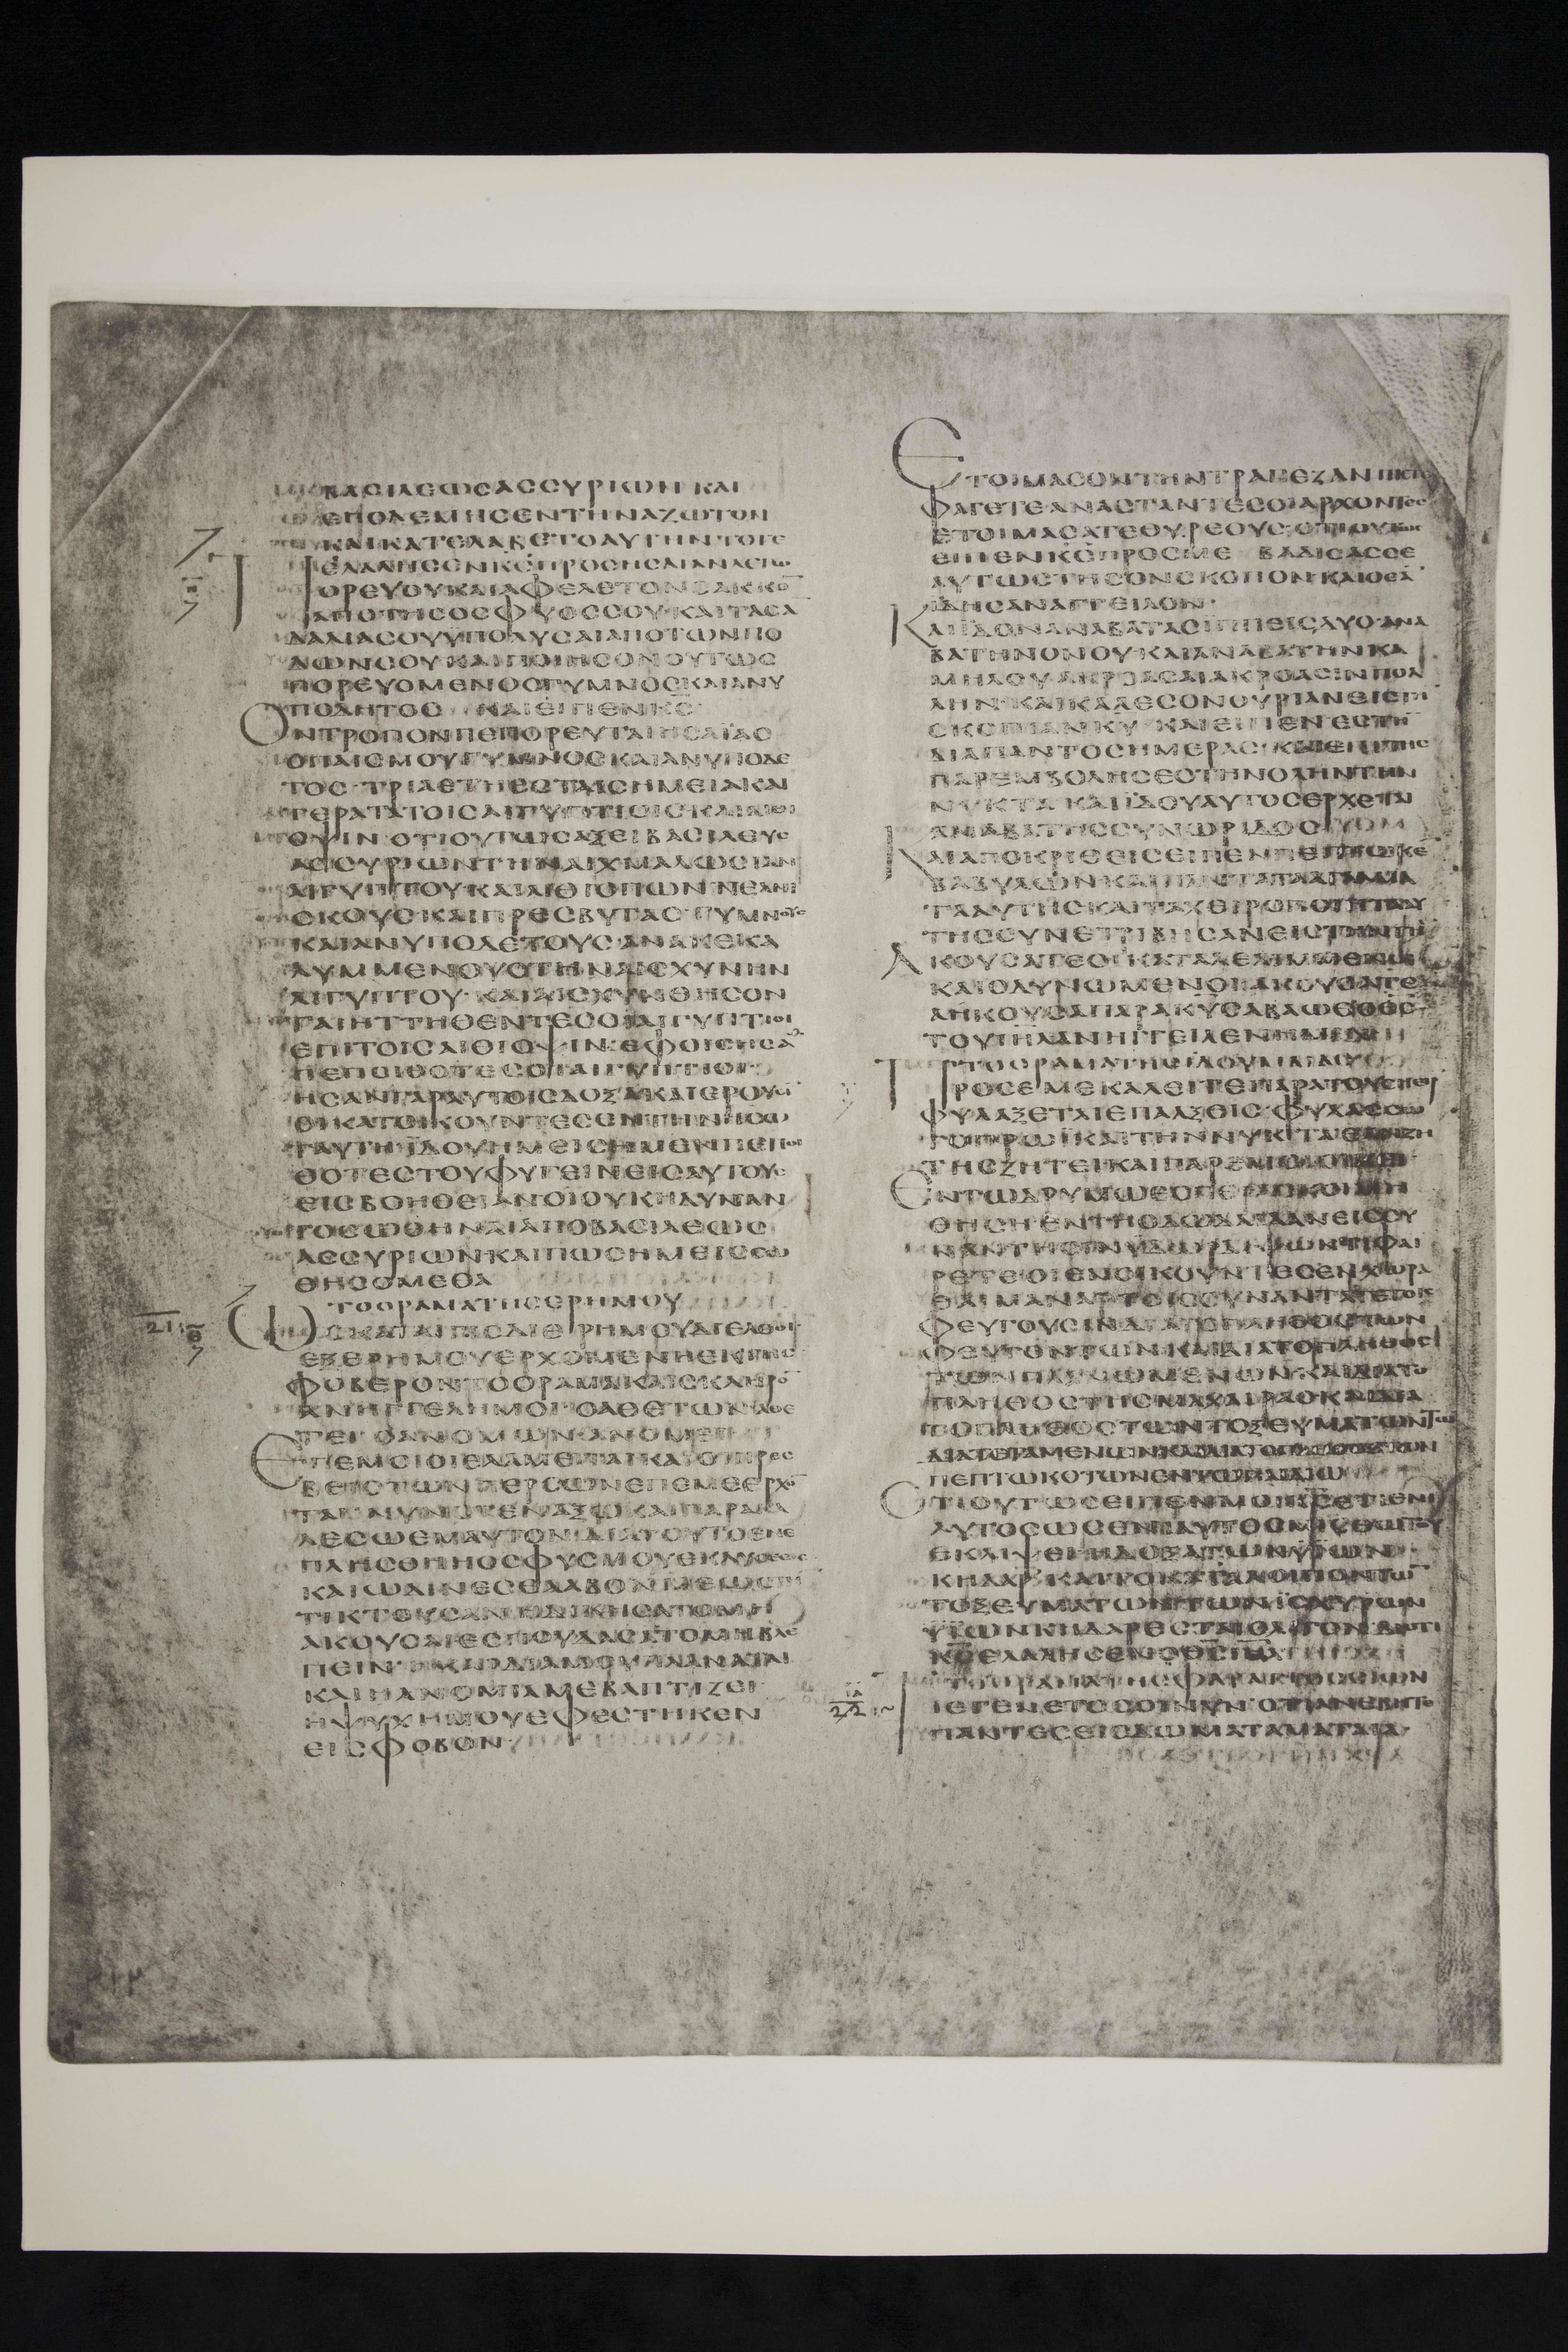 ΒΑϹΙΛΕΩϹΑϹϹΥΡΙΩΝ ΚΑΙ
ΕΠΟΛΕΜΗϹΕΝΤΗΝΑΖΩΤΟΝ
ΚΑΙΚΑΤΕΛΑΒΕΤΟΑΥΤΗΝΤΟΤΕ
ΕΛΑΛΗϹΕΝΚ̅Ϲ̅ΠΡΟϹΗϹΑΙΑΝΛΕΓΩ
ΠΟΡΕΥΟΥΚΑΙΑΦΕΛΕΤΟΝϹΑΚΚΟ̅
ΑΠΟΤΗϹΟϹΦΥΟϹϹΟΥ·ΚΑΙΤΑϹΑ
ΔΑΛΙΑϹΟΥΫΠΟΛΥϹΑΙΑΠΟΤΩΝΠΟ
ΔΩΝϹΟΥΚΑΙΠΟΙΗϹΟΝΟΥΤΩϹ
ΠΟΡΕΥΟΜΕΝΟϹΓΥΜΝΟϹΚΑΙΑΝΥ
ΠΟΔΗΤΟϹ ΚΑΙΕΙΠΕΝΚ̅Ϲ̅
ΟΝΤΡΟΠΟΝΠΕΠΟΡΕΥΤΑΙΗϹΑΪΑϹ
ΟΠΑΙϹΜΟΥΓΥΜΝΟϹΚΑΙΑΝΥΠΟΔΕ
ΤΟϹ·ΤΡΙΑΕΤΗΕϹΤΑΙϹΗΜΕΙΑΚΑΙ
ΤΕΡΑΤΑΤΟΙϹΑΙΓΥΠΤΙΟΙϹΚΑΙΑΙΘΙ
ΟΨΙΝ·ΟΤΙΟΥΤΩϹΑΞΕΙΒΑϹΙΛΕΥϹ
ΑϹϹΥΡΙΩΝΤΗΝΑΙΧΜΑΛΩϹΙΑΝ
ΑΙΓΥΠΤΟΥΚΑΙΑΙΘΙΟΠΩΝΝΕΑΝΙ
ϹΚΟΥϹΚΑΙΠΡΕϹΒΥΤΑϹ·ΓΥΜΝΟΥϹ
ΚΑΙΑΝΥΠΟΔΕΤΟΥϹ·ΑΝΑΚΕΚΑ
ΛΥΜΜΕΝΟΥϹΤΗΝΑΙϹΧΥΝΗΝ
ΑΙΓΥΠΤΟΥ·ΚΑΙΑΙϹΧΥΝΘΗϹΟΝ
ΤΑΙΗΤΤΗΘΕΝΤΕϹΟΙΑΙΓΥΠΤΙΟΙ
ΕΠΙΤΟΙϹΑΙΘΙΟΨΙΝ·ΕΦΟΙϹΗϹΑ̅
ΠΕΠΟΙΘΟΤΕϹΟΙΑΙΓΥΠΤΙΟΙ
ΗϹΑΝΓΑΡΑΥΤΟΙϹΔΟΞΑ·ΚΑΙΕΡΟΥϹΙ̅
ΟΙΚΑΤΟΙΚΟΥΝΤΕϹΕΝΤΗΝΗϹΩ
ΤΑΥΤΗ·ΪΔΟΥΗΜΕΙϹΗΜΕΝΠΕΠΟΙ
ΘΟΤΕϹΤΟΥΦΥΓΕΙΝΕΙϹΑΥΤΟΥϹ
ΕΙϹΒΟΗΘΕΙΑΝΟΙΟΥΚΗΔΥΝΑΝ
ΤΟϹΩΘΗΝΑΙΑΠΟΒΑϹΙΛΕΩϹ
ΑϹϹΥΡΙΩΝ·ΚΑΙΠΩϹΗΜΕΙϹϹΩ
ΘΗϹΟΜΕΘΑ
ΤΟΟΡΑΜΑΤΗϹΕΡΗΜΟΥ
ΩϹΚΑΤΑΙΓΙϹΔΙΕΡΗΜΟΥΔΙΕΛΘΟΙ
ΕΞΕΡΗΜΟΥΕΡΧΟΜΕΝΗΕΚΓΗϹ
ΦΟΒΕΡΟΝΤΟΟΡΑΜΑΚΑΙϹΚΛΗΡΟ̅
ΑΝΗΓΓΕΛΗΜΟΙ·ΟΑΘΕΤΩΝΑΘΕ
ΤΕΙ·ΟΑΝΟΜΩΝΑΝΟΜΕΙ
ΕΠΕΜΟΙΟΙΕΛΑΜΕΙΤΑΙΚΑΙΟΙΠΡΕϹ
ΒΕΙϹΤΩΝΠΕΡϹΩΝΕΠΕΜΕΕΡΧΟ̅
ΤΑΙ·ΝΥΝϹΤΕΝΑΞΩΚΑΙΠΑΡΑΚΑ
ΛΕϹΩΕΜΑΥΤΟΝ·ΔΙΑΤΟΥΤΟΕΝΕ
ΠΛΗϹΘΗΗΟϹΦΥϹΜΟΥΕΚΛΥϹΕΩϹ
ΚΑΙΩΔΙΝΕϹΕΛΑΒΟΝΜΕΩϹΤΗ̅
ΤΙΚΤΟΥϹΑΝ·ΗΔΙΚΗϹΑΤΟΜΗ
ΑΚΟΥϹΑΙΕϹΠΟΥΔΑϹΑΤΟΜΗΒΛΕ
ΠΕΙΝ·ΗΚΑΡΔΙΑΜΟΥΠΛΑΝΑΤΑΙ
ΚΑΙΗΑΝΟΜΙΑΜΕΒΑΠΤΙΖΕΙ
ΗΨΥΧΗΜΟΥΕΦΕϹΤΗΚΕΝ
ΕΙϹΦΟΒΟΝ
ΕΤΟΙΜΑϹΟΝΤΗΝΤΡΑΠΕΖΑΝ
ΦΑΓΕΤΕ·ΑΝΑϹΤΑΝΤΕϹΟΙΑΡΧΟΝΤΕϹ
ΕΤΟΙΜΑϹΑΤΕΘΥΡΕΟΥϹ·ΟΤΙΟΥΤΩϹ
ΕΙΠΕΝΚ̅Ϲ̅ΠΡΟϹΜΕ ΒΑΔΙϹΑϹϹΕ
ΑΥΤΩϹΤΗϹΟΝϹΚΟΠΟΝ·ΚΑΙΟΕΑ̅
ΙΔΗϹΑΝΑΓΓΕΙΛΟΝ·
ΚΑΙΪΔΟΝΑΝΑΒΑΤΑϹΪΠΠΕΙϹΔΥΟ·ΑΝΑ
ΒΑΤΗΝΟΝΟΥ·ΚΑΙΑΝΑΒΑΤΗΝΚΑ
ΜΗΛΟΥ·ΑΚΡΟΑϹΑΙΑΚΡΟΑϹΙΝΠΟΛ
ΛΗΝ·ΚΑΙΚΑΛΕϹΟΝΟΥΡΙΑΝΕΙϹΤΗ̅
ϹΚΟΠΙΑΝΚ̅Υ̅ ΚΑΙΕΙΠΕΝΕϹΤΗ̅
ΔΙΑΠΑΝΤΟϹΗΜΕΡΑϹ·ΚΑΙΕΠΙΤΗϹ
ΠΑΡΕΜΒΟΛΗϹΕϹΤΗΝΟΛΗΝΤΗΝ
ΝΥΚΤΑ ΚΑΙΪΔΟΥΑΥΤΟϹΕΡΧΕΤΑΙ
ΑΝΑΒΑΤΗϹϹΥΝΩΡΙΔΟϹ
ΚΑΙΑΠΟΚΡΙΘΕΙϹΕΙΠΕΝΠΕΠΤΩΚΕ
ΒΑΒΥΛΩΝ·ΚΑΙΠΑΝΤΑΤΑΑΓΑΛΜΑ
ΤΑΑΥΤΗϹΚΑΙΤΑΧΕΙΡΟΠΟΙΗΤΑΑΥ
ΤΗϹϹΥΝΕΤΡΙΒΗϹΑΝΕΙϹΤΗΝΓΗ̅
ΑΚΟΥϹΑΤΕΟΙΚΑΤΑΛΕΛΙΜΜΕΝΟΙ
ΚΑΙΟΔΥΝΩΜΕΝΟΙ·ΑΚΟΥϹΑΤΕ
ΑΗΚΟΥϹΑΠΑΡΑΚ̅Υ̅ϹΑΒΑΩΘΟΘ̅Ϲ̅
ΤΟΥΙ̅Η̅Λ̅ΑΝΗΓΓΕΙΛΕΝΗΜΙΝ
ΤΟΟΡΑΜΑΤΗϹΪΔΟΥΜΑΙΑϹ
ΠΡΟϹΕΜΕΚΑΛΕΙΤΕΠΑΡΑΤΟΥϹΗΕΙΡ
ΦΥΛΑΞΕΤΑΙΕΠΑΛΞΕΙϹ·ΦΥΛΑϹϹΩ
ΤΟΠΡΩΪΚΑΙΤΗΝΝΥΚΤΑ·ΕΑΝΖΗ
ΤΗϹΖΗΤΕΙΚΑΙΠΑΡΕΜΟΙΟΙΚΕΙ
ΕΝΤΩΔΡΥΜΩΕϹΠΕΡΑϹΚΟΙΜΗ
ΘΗϹΗΕΝΤΗΟΔΩΔΑΙΔΑΝΕΙϹΥ
ΝΑΝΤΗϹΙΝΥΔΩΡΔΙΨΩΝΤΙΦΑΙ
ΡΕΤΕΟΙΕΝΟΙΚΟΥΝΤΕϹΕΝΧΩΡΑ
ΘΑΙΜΑΝ·ΑΡΤΟΙϹϹΥΝΑΝΤΑΤΕΤΟΙϹ
ΦΕΥΓΟΥϹΙΝΔΙΑΤΟΠΛΗΘΟϹΤΩΝ
ΦΕΥΓΟΝΤΩΝΚΑΙΔΙΑΤΟΠΛΗΘΟϹ
ΤΩΝΠΛΑΝΩΜΕΝΩΝ·ΚΑΙΔΙΑΤΟ
ΠΛΗΘΟϹΤΗϹΜΑΧΑΙΡΑϹΚΑΙΔΙΑ
ΤΟΠΛΗΘΟϹΤΩΝΤΟΞΕΥΜΑΤΩΝΤΩ̅
ΔΙΑΤΕΤΑΜΕΝΩΝΚΑΙΔΙΑΤΟΠΛΗΘΟϹΤΩΝ
ΠΕΠΤΩΚΟΤΩΝΕΝΤΩΠΟΛΕΜΩ
ΟΤΙΟΥΤΩϹΕΙΠΕΝΜΟΙΚ̅Ϲ̅ΕΤΙΕΝΙ
ΑΥΤΟϹΩϹΕΝΙΑΥΤΟϹΜΙϹΘΩΤΟΥ
ΚΗΔΑΡ·ΚΑΙΤΟΚΑΤΑΛΟΙΠΟΝΤΩ̅
ΤΟΞΕΥΜΑΤΩΝΤΩΝΪϹΧΥΡΩΝ
ΫΪΩΝΚΗΔΑΡΕϹΤΑΙΟΛΙΓΟΝ·ΔΙΟΤΙ
Κ̅Ϲ̅ΕΛΑΛΗϹΕΝΟΘ̅Ϲ̅Ι̅Η̅Λ̅
ΤΟΟΡΑΜΑΤΗϹΦΑΡΑΓΓΟϹϹΙΩΝ
ΤΙΕΓΕΝΕΤΟϹΟΙΝΥΝ·ΟΤΙΑΝΕΒΗΤΕ
ΠΑΝΤΕϹΕΙϹΔΩΜΑΤΑΜΑΤΑΙΑ·